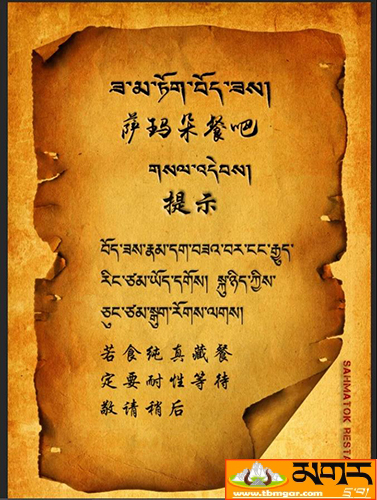 ཟ་མ་ཏོག་བོད་ཟས།
萨玛朵餐吧
གསལ་འདེབས།
提示
བོད་ཟས་རྣམ་དག་བཟའ་བར་ངང་རྒྱུད་
རིང་ཙམ་ཡོད་དགོས། སྐུ་ཉིད་ཀྱིས་
ཅུང་ཙམ་སྒུག་རོགས་ལགས།
若食纯真藏餐
定要耐性等待
敬请稍后
SAHMATOK RESTA
མགར
www.tbmgar.com
དྲ་བ།